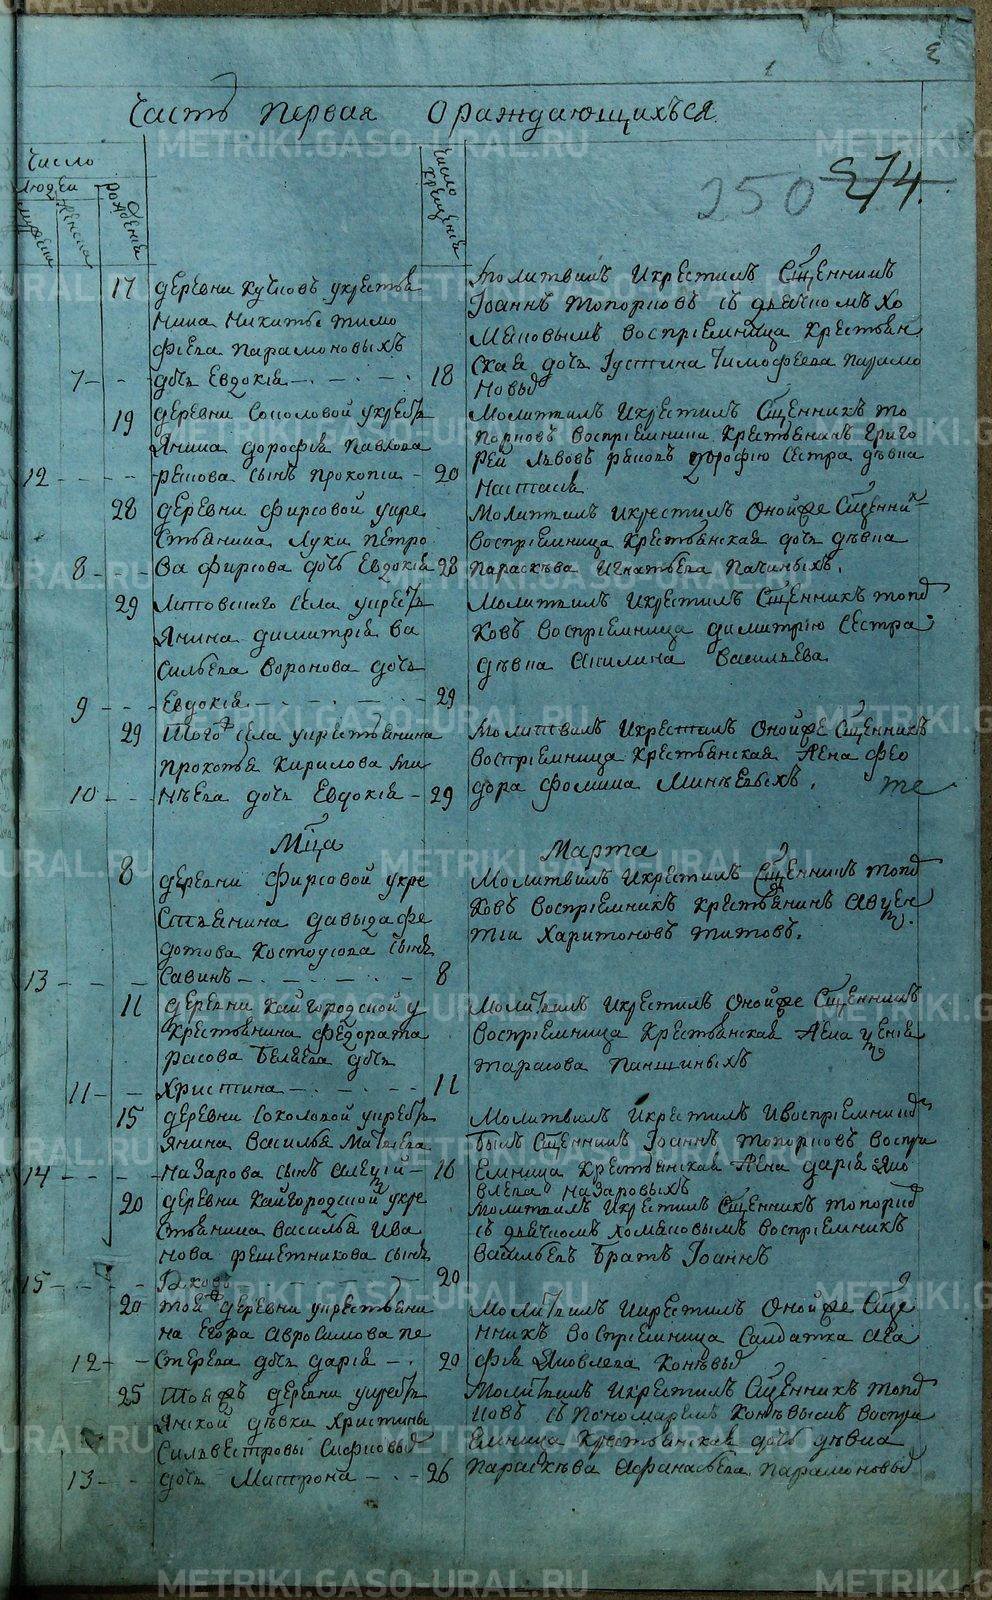 Часть первая о раждающихъся
Число
людей
мужеска
женска
рождения
Число крещения
250
274.
17 деревни Кучковъ укрестья
нина Никиты Тимо
фѣева Парамоновыхъ
7 - - дочь Евдокія - - - - 18
Молитвилъ Икрестилъ Сщенникъ
Іоаннъ Топорковъ съ дьячкомъ Хо
мяковымъ воспріемница крестьян
ская дочь Іустина Тимофеева Парамо
новыхъ
19 деревни Соколовой укресть
янина Дорофея Павлова
12 - - - - рекова сынъ Прокопій - 20
Молитвилъ Икрестилъ Сщенникъ То
порковъ воспріемники крестьянинъ Григо
рей Львовъ Дорофею сестра дѣвка
Настасья
28 деревни Фирсовой укре
стьянина Луки Петро
8 - - - ва Фирсова дочь Евдокія 28
Молитвилъ Икрестилъ Онойже Сщенникъ
воспріемница крестьянская дочь дѣвка
Параскѣва Игнатьева
29 Липовскаго села укресть
янина Димитрія Ва
сильева Воронова дочь
9 - - - Евдокія - - - - 29
Молитвилъ Икрестилъ Сщенникъ Топор
ковъ воспріемница Димитрію сестра
дѣвка Акилина Васильева
29 Того села укрестьянина
Прокопья Кирилова Ми
10 - - нѣева дочь Евдокія - 29
Молитвилъ Икрестилъ Онойже Сщенникъ
воспріемница крестьянская жена Фео
дора Фомина Минѣевыхъ.
Мца Марта
8 деревни Фирсовой укре
стьянина Давыда Фе
дотова Костоусова сынъ
13 - - - Савинъ - - - - 8
Молитвилъ Икрестилъ Сщенникъ Топор
ковъ воспріемникъ крестьянинъ Авксен
тіи Харитоновъ Титовъ.
11 деревни Кайгородской у
крестьянина Федора Та
расова Бѣляева дочь
11 - - - Христина - - - - 11
Молитвилъ Икрестилъ Онойже Сщенникъ
воспріемница крестьянская жена
Тарасова Паншиныхъ
15 деревни Соколовой укресть
янина Василья Матвѣева
14 - - - - Назарова сынъ Алексій - 16
Молитвилъ Икрестилъ Ивоспріемникъ
былъ Сщенникъ Іоаннъ Топорковъ воспри
емница крестьянская жена Дарія Яко
влева Назаровыхъ
20 деревни Кайгородской укре
стьянина Василья Ива
нова Решетникова сынъ
15 - - - - Іяковъ - - - - 20
Молитвилъ Икрестилъ Сщенникъ Топорков
съ дьячкомъ Хомяковымъ воспріемникъ
Васильевъ братъ Іоаннъ
20 той деревни укрестьяни
на Егора Авросимова Пе
12 - - стерева дочь Дарія - - 20
Молитвилъ Икрестилъ Онойже Сще
нникъ воспріемница салдатка Ага
фія Яковлева Конѣвыхъ
25 Тояжъ деревни укресть
янской дѣвки Христины
Силвестровы
13 - - дочь Матрона - - - 26
Молитвилъ Икрестилъ Сщенникъ Топор
ковъ съ пономаремъ Конѣвымъ воспри
емница крестьянская дочь дѣвка
Параскѣва Афанасьева Парамоновыхъ
METRIKI.GASO-URAL.RU